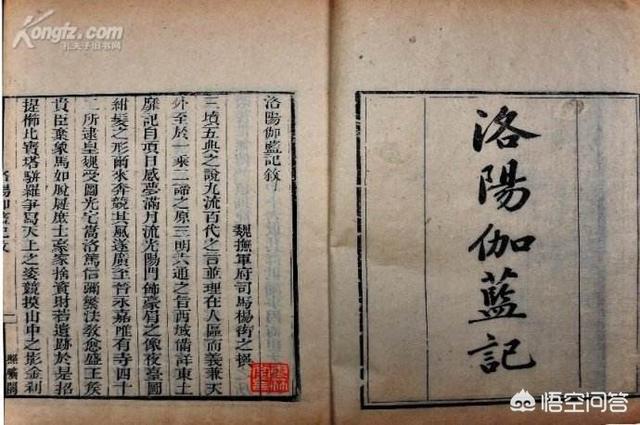 洛陽伽藍記
洛陽伽藍記敘
魏撫軍府司馬楊衒之撰
三墳五典之說九流百代之言並理在人區而義兼天
外至於一乘二諦之原三明六通之旨西域備詳東土
靡記自項日感夢滿月流光陽門飾豪眉之像夜臺圖
紺髮之形爾來奔競其風遂廣至晉永嘉唯有寺四十
二所逮皇魏受圖光宅嵩洛篤信彌繁法教愈盛王侯
貴臣棄象馬如脫屣庶士豪家捨資財若遺跡於是招
提櫛比寶塔駢羅爭寫天上之姿競摸山中之影金利
洛陽伽藍記敘
一
照曠閣
Kongfz.com
孔夫子旧书网
悟空问答